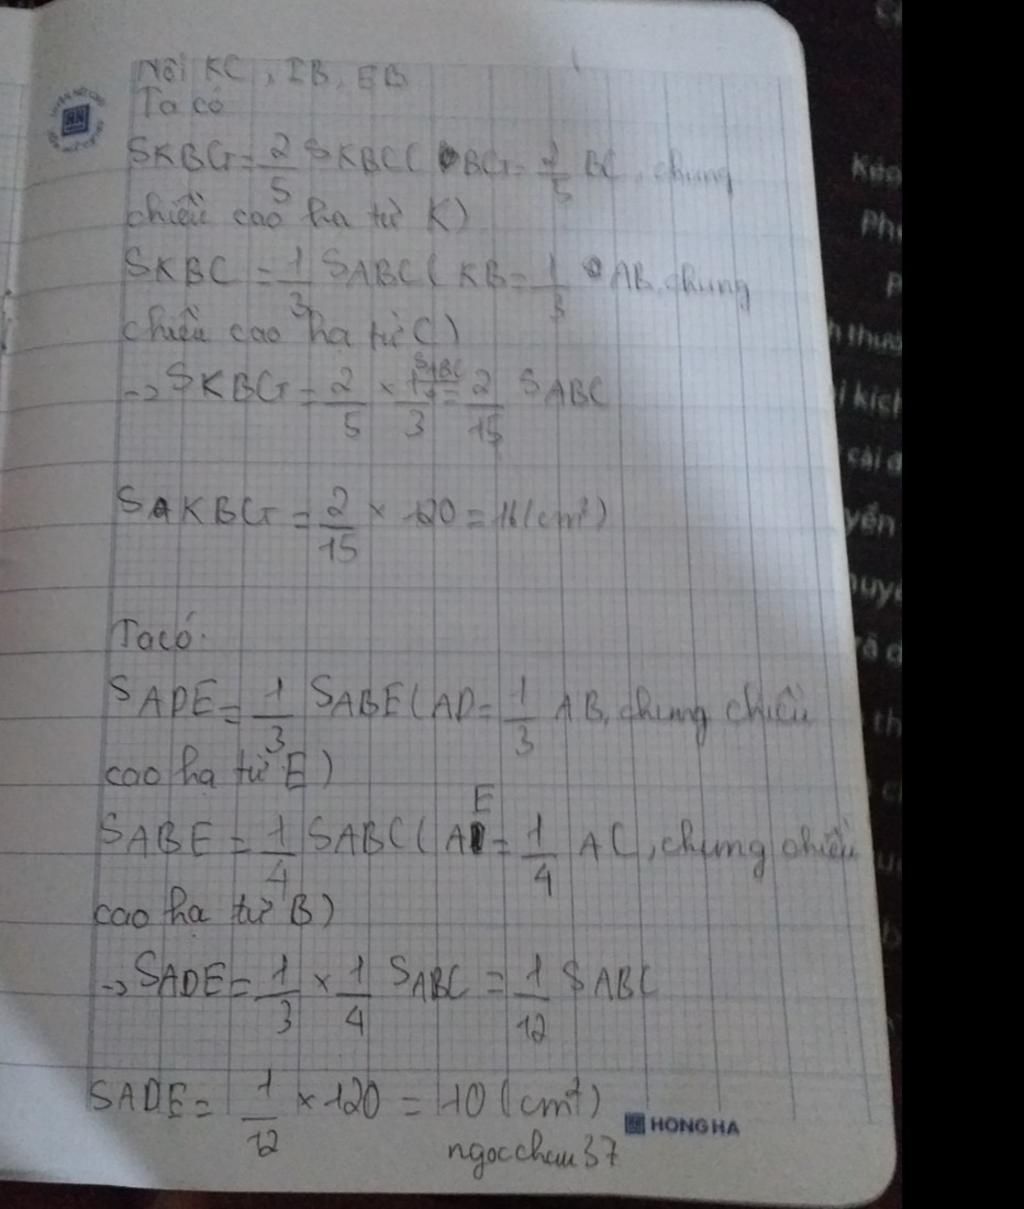 Nối KC, IB, EB
Ta có
SKBG = 2/5 SKBC ( BG = 2/5 BC, chung
chiều cao hạ từ K)
SKBC = 1/3 SABC ( KB = 1/3 AB, chung
chiều cao hạ từ C)
-> SKBG = 2/5 × 1/3 SABC = 2/15 SABC
SKBG = 2/15 × 120 = 16 (cm²)
Ta có:
SADE = 1/3 SABE ( AD = 1/3 AB, chung chiều
cao hạ từ E)
SABE = 1/4 SABC ( AE = 1/4 AC, chung chiều
cao hạ từ B)
-> SADE = 1/3 × 1/4 SABC = 1/12 SABC
SADE = 1/12 × 120 = 10 (cm²)
HONG HA
ngocchau37